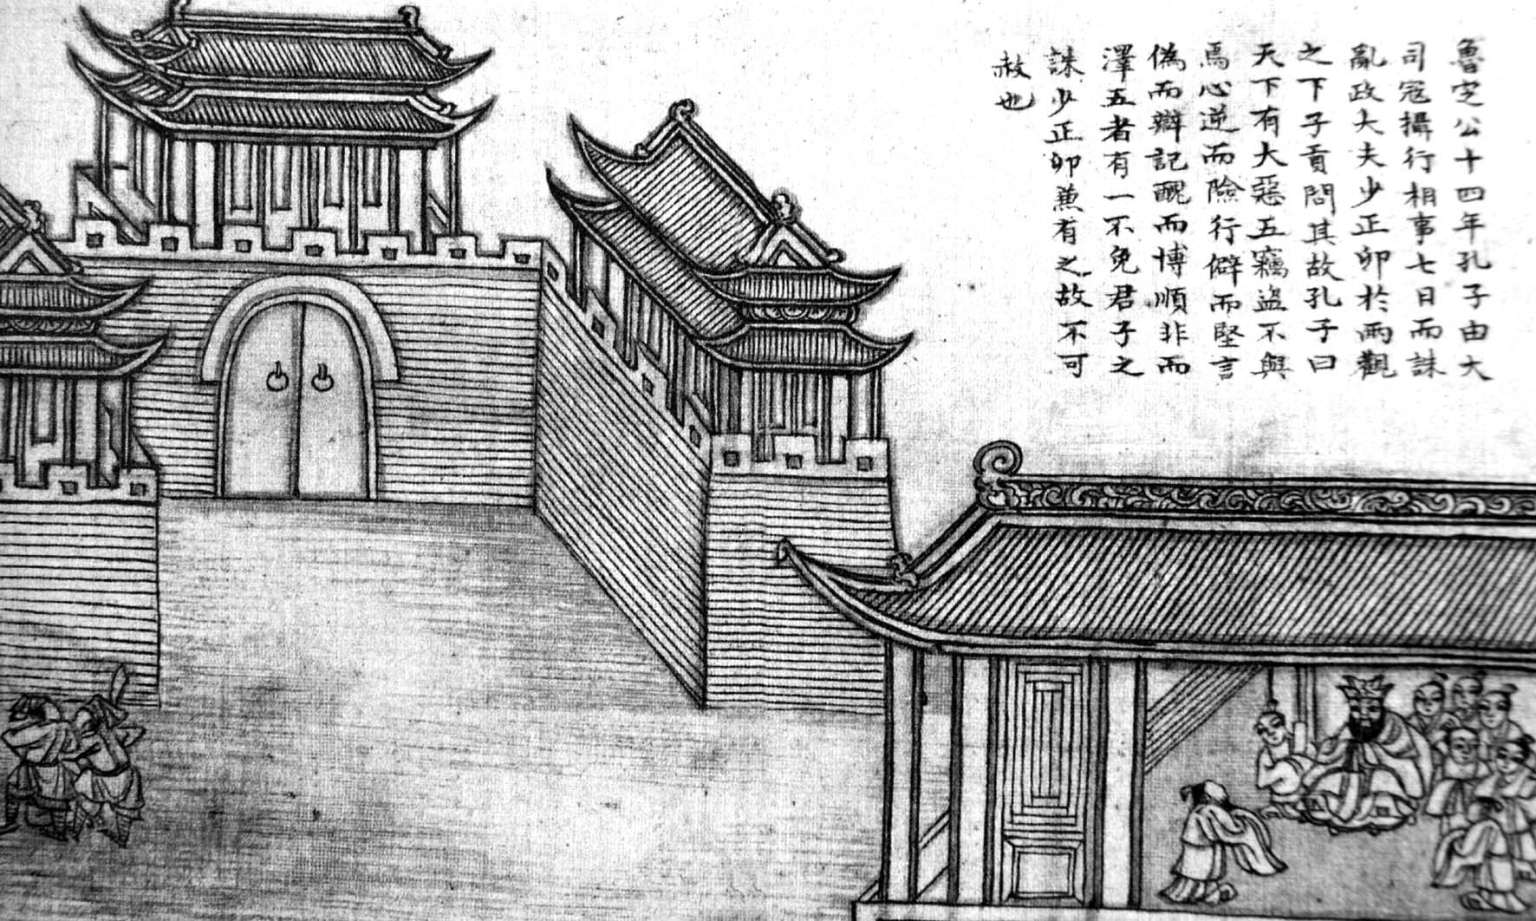 魯定公十四年孔子由大
司寇攝行相事七日而誅
亂政大夫少正卯於兩觀
之下子貢問其故孔子曰
天下有大惡五竊盗不與
焉心逆而險行僻而堅言
偽而辯記醜而博順非而
澤五者有一不免君子之
誅少正卯兼有之故不可
赦也